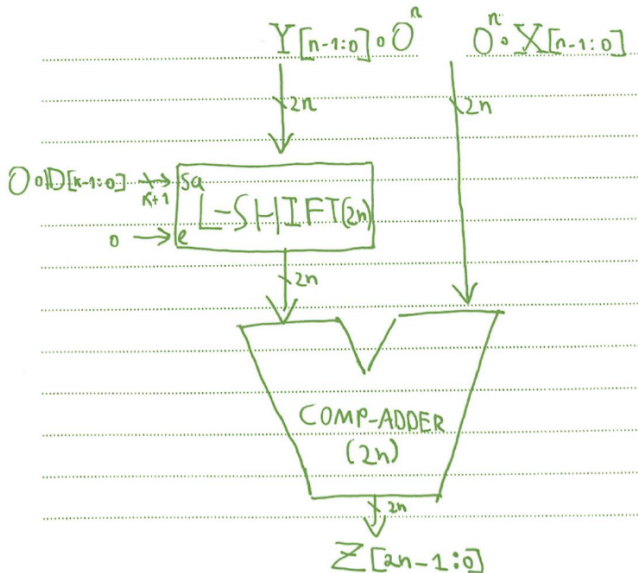 Y[n-1:0]∘0ⁿ 0ⁿ∘X[n-1:0]
2n 2n
0∘D[k-1:0] k+1 sa
L-SHIFT(2n)
0 e
2n
COMP-ADDER
(2n)
2n
Z[2n-1:0]